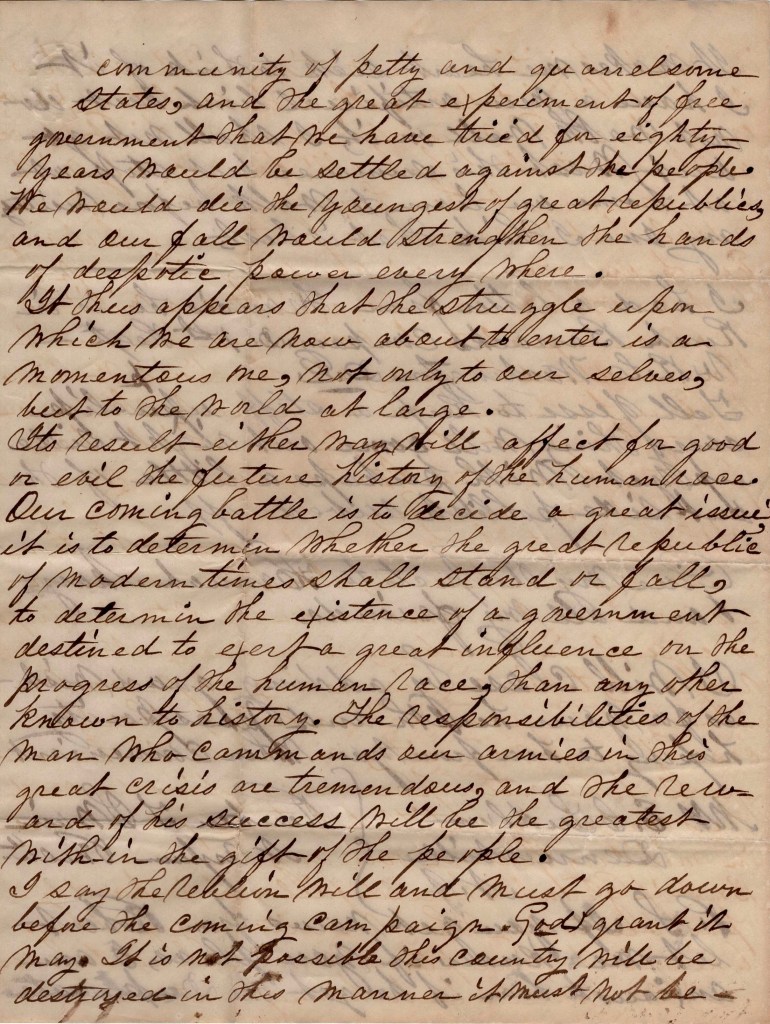 community of petty and quarrelsome
states, and the great experiment of free
government that we have tried for eighty-
years would be settled against the people.
We would die the youngest of great republics,
and our fall would strengthen the hands
of despotic power every where.
It thus appears that the struggle upon
which we are now about to enter is a
momentous one, not only to our selves,
but to the world at large.
Its result either way will affect for good
or evil the future history of the human race.
Our coming battle is to decide a great issue,
it is to determin whether the great republic
of modern times shall stand or fall,
to determin the existence of a government
destined to exert a great influence on the
progress of the human race, than any other
known to history. The responsibilities of the
man who commands our armies in this
great crisis are tremendous, and the rew-
ard of his success will be the greatest
with-in the gift of the people.
I say the reblion will and must go down
before the coming campaign. God grant it
may. It is not possible this country will be
destroyed in this manner it must not be -